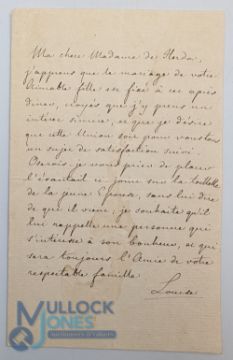 Ma chere Madame de
j'apprens que le mariage de votre
Aimable fille est fixé à cet après
diner, croyés que j'y prens un
interet sincere, et que je désire
que cette Union soit pour vous tous
un sujet de satisfaction
Oserais-je vous prier de placer
l'évantail ci joint sur la toilette
de la jeune Epouse, sans lui dire
de qui il vient, je souhaite qu'il
lui rappelle une personne qui
s'interesse à son bonheur, et qui
sera toujours l'Amie de votre
respectable famille.
Louise
MULLOCK
JONES
Auctioneers & Valuers